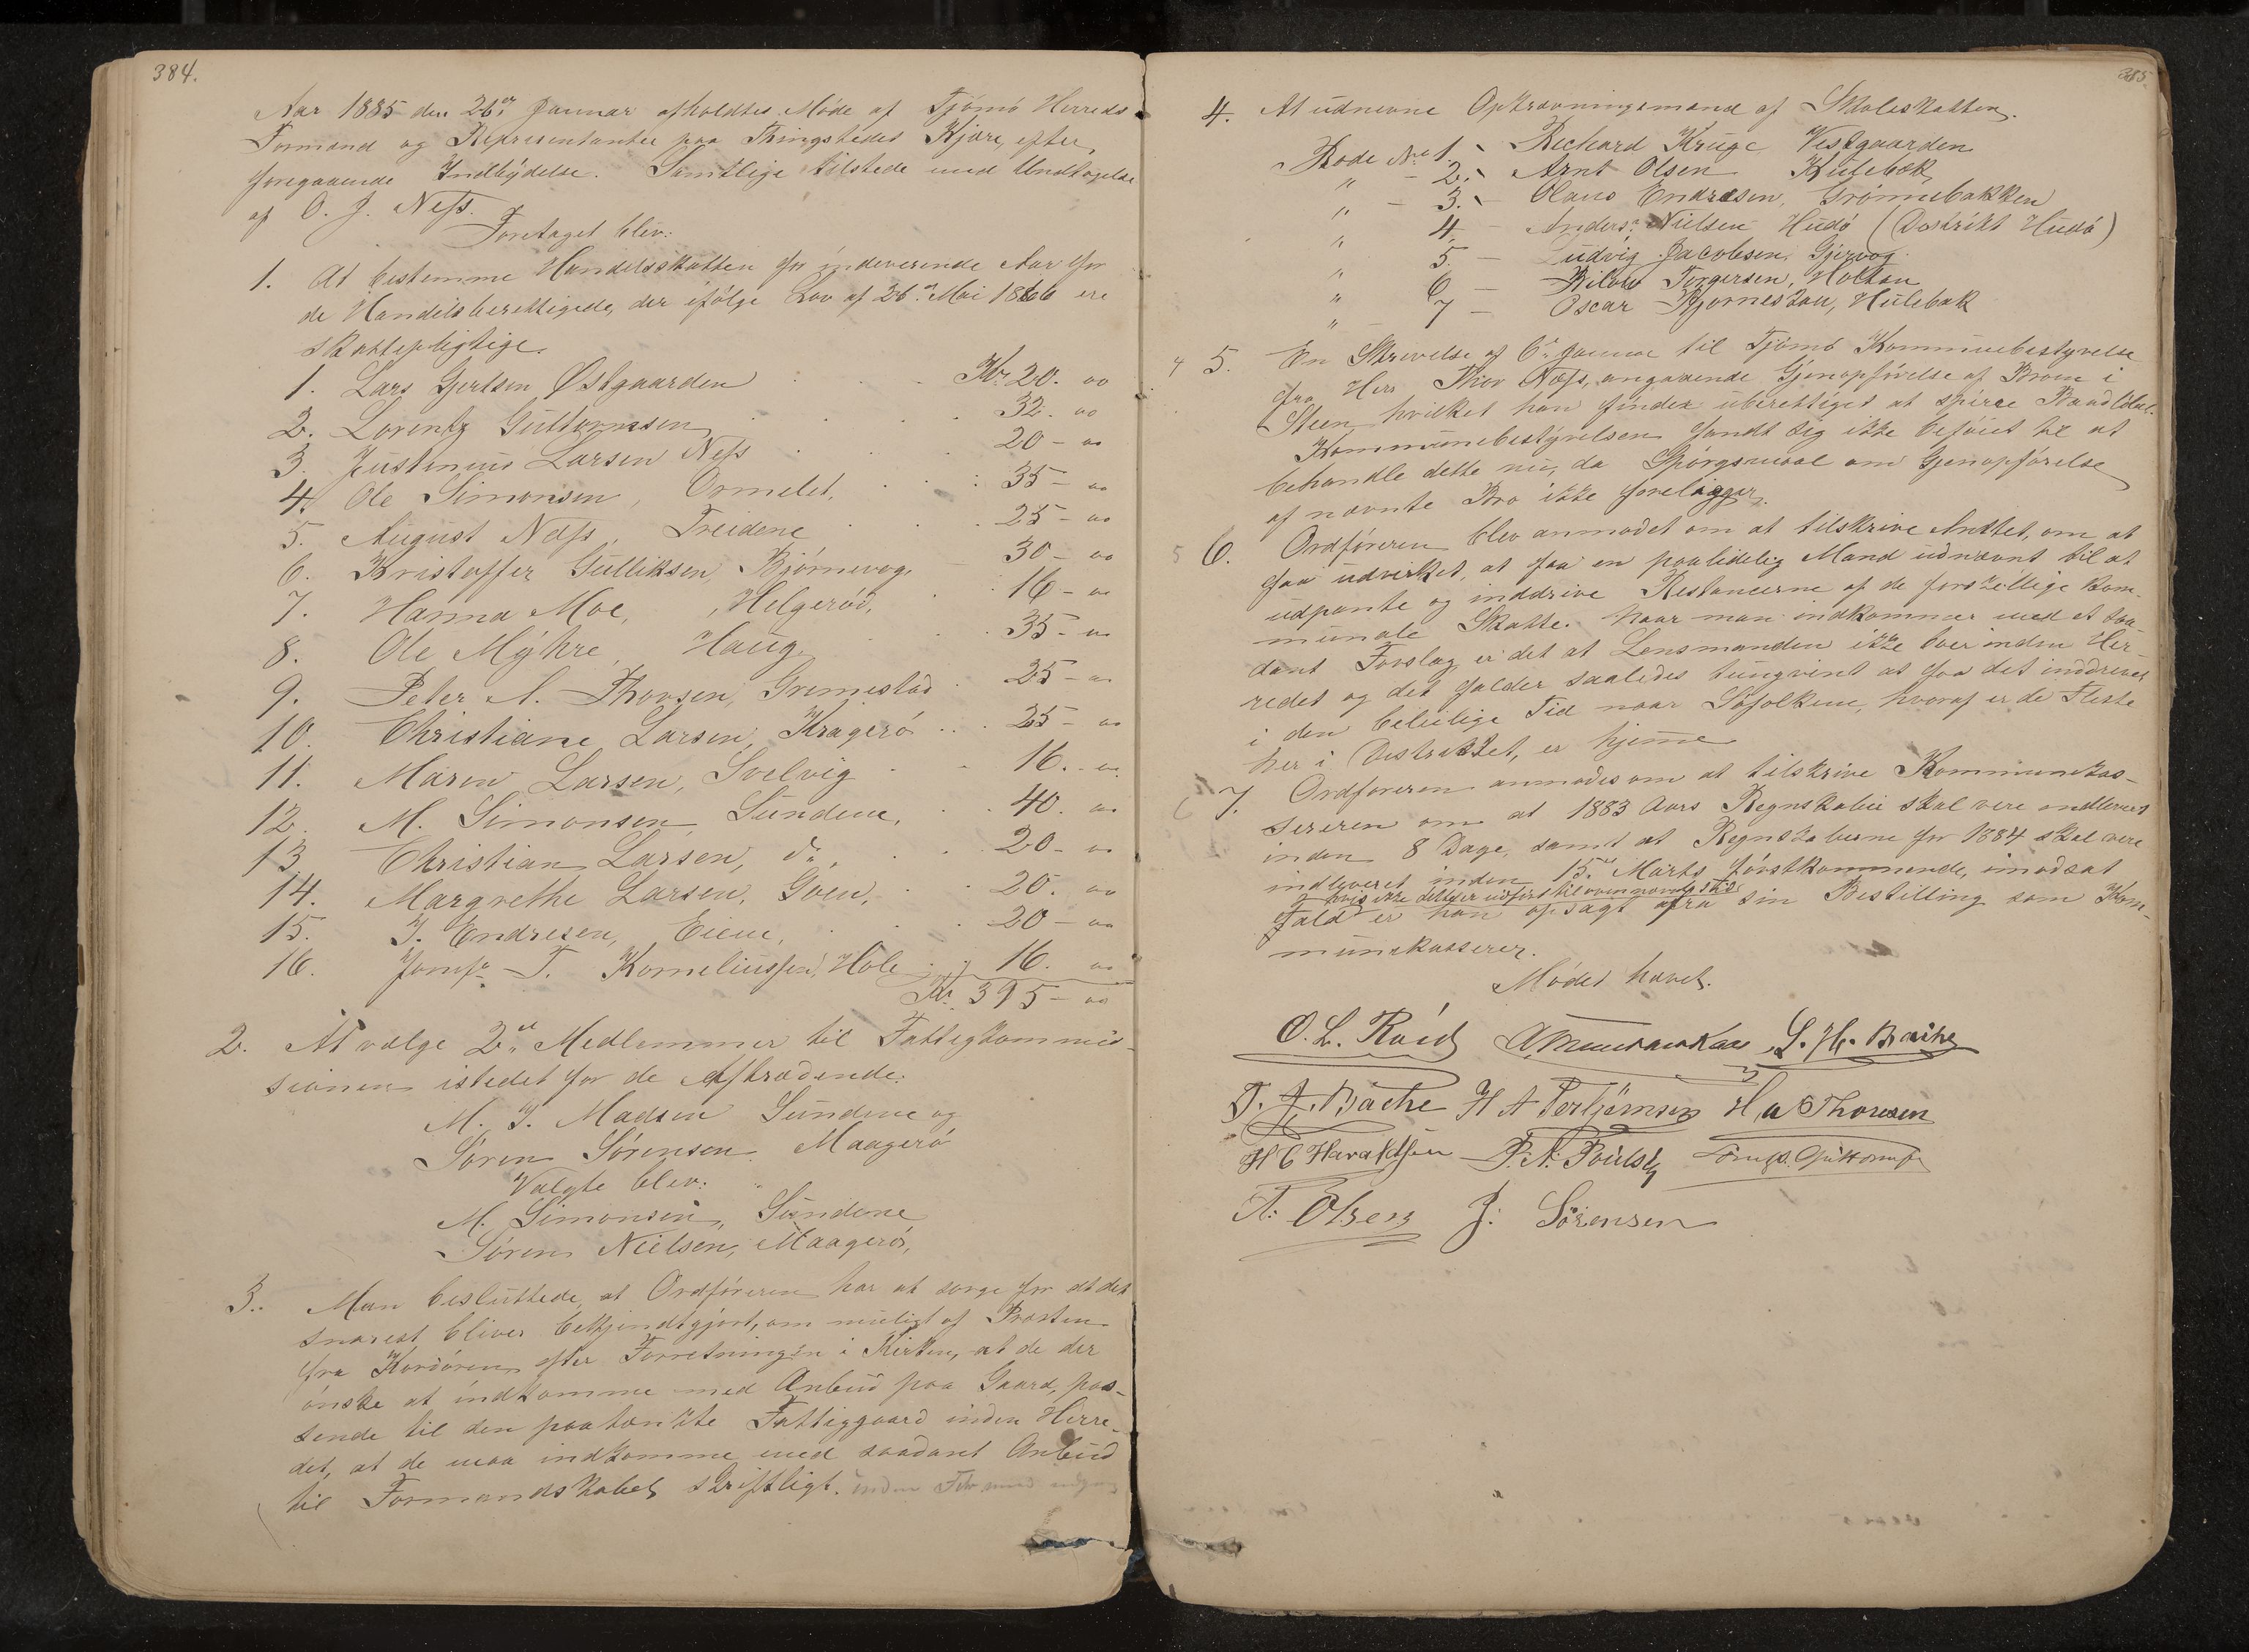 384.
Aar 1885 den 26de Januar afholdtes Møde af Tjømø Herreds
Formænd og Repræsentanter paa Thingstedet Kjære, efter
foregaaende Indbydelse. Samtlige tilstede med Undtagelse
af O. J. Næss.
Foretaget blev:
1. At bestemme Handelsskatten for indeværende Aar for
de Handelsberettigede, der ifølge Lov af 26de Mai 1866 ere
skattepligtige.
1. Lars Gjertsen Østgaarden Kr. 20. 00
2. Lorentz Guttormsen 32. 00
3. Justinius Larsen Næss 20 - 00
4. Ole Simonsen, Ormelet, 35 - 00
5. August Næss, Treidene 25 - 00
6. Kristoffer Gulliksen, Bjørnevog, 30 - 00
7. Hanna Moe, Helgerød, 16 - 00
8. Ole Myhre, Haug, 35 - 00
9. Peter A. Thovsen, Grimestad 25 - 00
10. Christiane Larsen, Kragerø 25 - 00
11. Maren Larsen, Svelvig 16. - 00
12. M. Simonsen, Sundene, 40. 00
13 Christian Larsen, do, 20 - 00
14. Margrethe Larsen, Goen, 20. 00
15. J. Endresen, Eiene, 20 - 00
16. Jomf. T. Korneliussen, Hole 16. 00
Kr. 395 - 00
2. At vælge 2de Medlemmer til Fattigkommis-
sionen istedet for de Aftrædende:
M. J. Madsen Sundene og
Søren Sørensen, Maagerø
Valgte blev:
M. Simonsen, Sundene
Søren Nielsen, Maagerø,
3. Man besluttede, at Ordføreren har at sørge for at det
snarest bliver bekjendtgjort, om muligt af Præsten
fra Kordøren efter Forretningen i Kirken, at de der
ønske at indkomme med Anbud paa Gaard, pas-
sende til den paatænkte Fattiggaard inden Herre-
det, at de maa indkomme med saadant Anbud
til Formandskabet skriftligt. inden
385.
4. At udnævne Opkrævningsmænd af Skoleskatten.
Rode No 1. - Richard Kruge Vestgaarden
" - 2. - Arnt Olsen Hulebæk
" - 3. - Olaus Endresen, Grønnebakken
" 4. - Anders Nielsen Hudø (Distrikt Hudø)
" 5. - Ludvig Jacobsen, Gjervog
" 6 - Torgersen, Holtan
" 7 - Oscar Bjørneskau, Hulebak
4 5. En Skrivelse af 6te Januar til Tjømø Kommunebestyrelse
fra Herr Thor Næss, angaaende Gjenopførelse af Broen i
Steen hvilket han finder uberettiget at spirre
Kommunebestyrelsen fandt sig ikke beføiet til at
behandle dette nu, da Spørgsmaal om Gjenopførelse
af nævnte Bro ikke foreligger.
5 6. Ordføreren blev anmodet om at tilskrive Amtet, om at
faa udvirket, at faa en paalidelig Mand udnævnt til at
udpante og inddrive Restancerne af de forskellige kom-
munale Skatte. Naar man indkommer med et saa-
dant Forslag, er det at Lensmanden ikke boer inden Her-
redet og det falder saaledes tungvint at faa det inddrevet
i den beleilige Tid naar Søfolkene, hvoraf er de Fleste
her i Distriktet, er hjemme
6 7. Ordføreren anmodes om at tilskrive Kommunekas-
sereren om at 1883 Aars Regnskaber skal være indleveret
inden 8 Dage, samt at Regnskaberne for 1884 skal være
indleveret inden 15de Marts førstkommende, imodsat
og hvis ikke dette er udført til ovennævnte Tid
Fald er han opsagt fra sin Bestilling som Kom-
munekasserer.
Mødet hævet.
O. L. Røed L. H. Bache
T. J. Bache H A Terkjømsen H A Thovsen
H C Haraldsen P. A. Poulsen
A: Olsen J: Sørensen